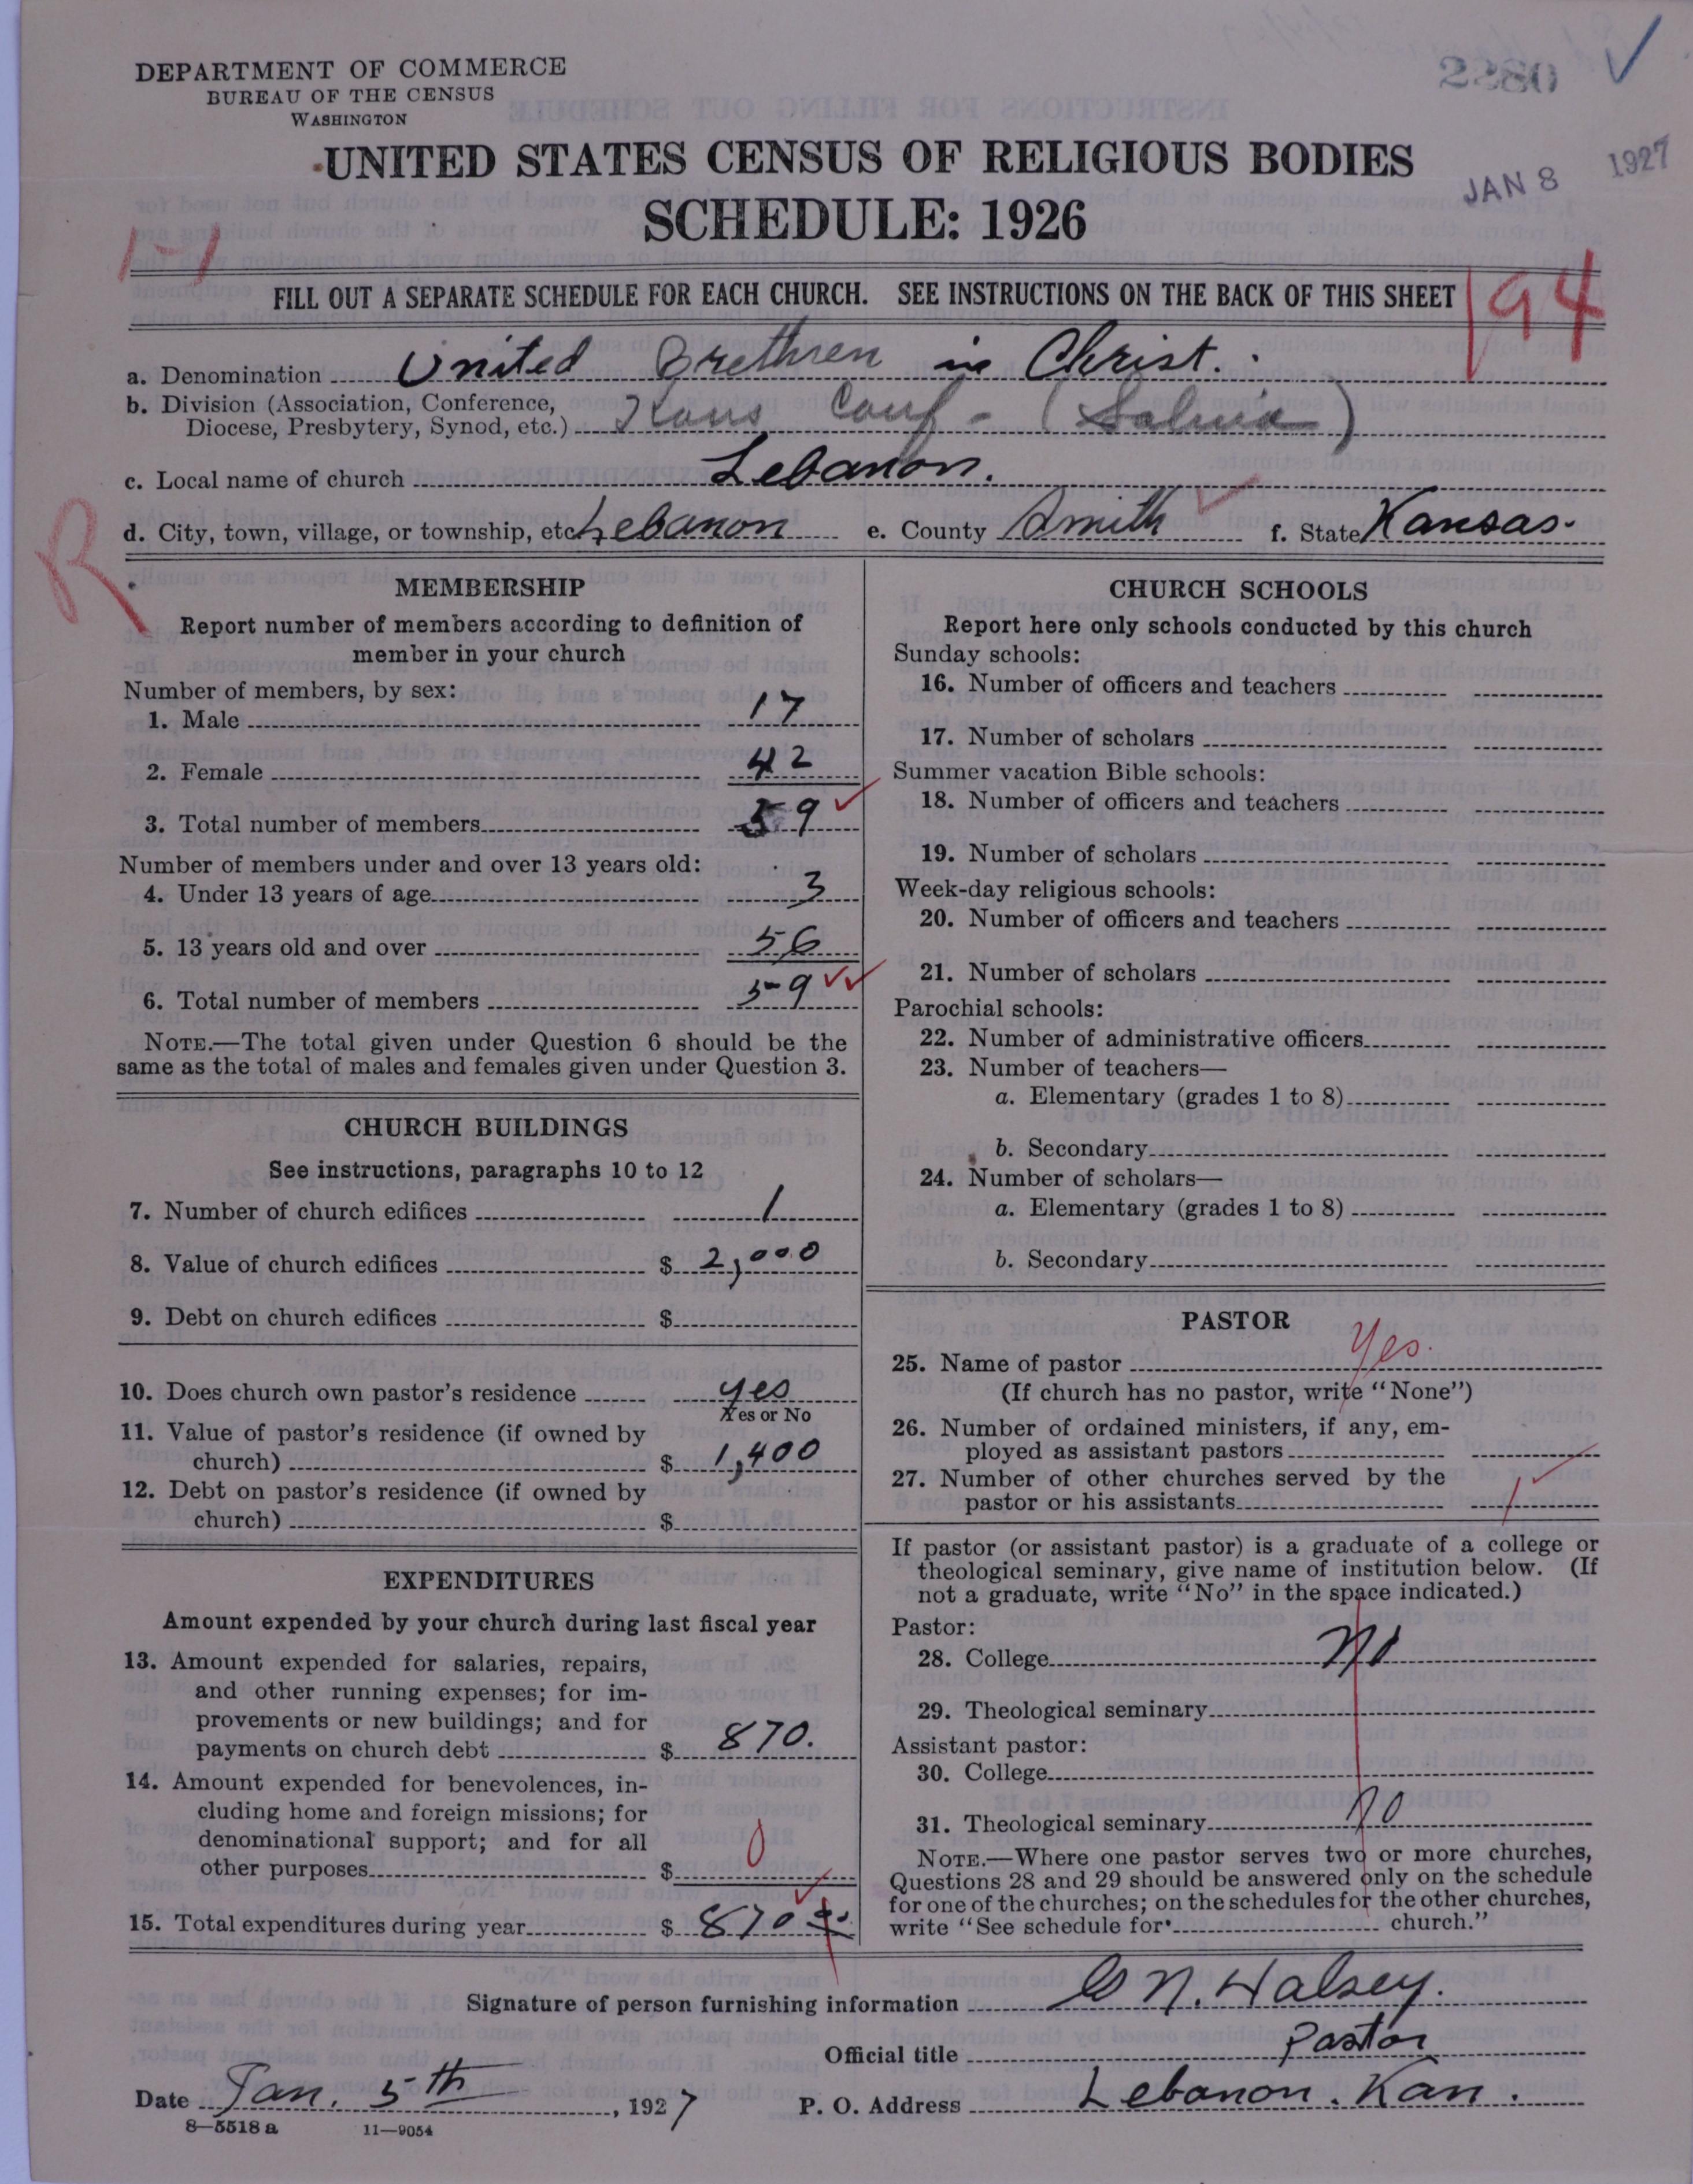 DEPARTMENT OF COMMERCE
BUREAU OF THE CENSUS
WASHINGTON
2280
UNITED STATES CENSUS OF RELIGIOUS BODIES
JAN 8 1927
SCHEDULE: 1926
1-1
FILL OUT A SEPARATE SCHEDULE FOR EACH CHURCH. SEE INSTRUCTIONS ON THE BACK OF THIS SHEET
194
a. Denomination United Brethren in Christ.
b. Division (Association, Conference,
Diocese, Presbytery, Synod, etc.) Kans Conf - (Salina)
c. Local name of church Lebanon.
d. City, town, village, or township, etc. Lebanon e. County Smith f. State Kansas.
R
MEMBERSHIP
Report number of members according to definition of
member in your church
Number of members, by sex:
1. Male 17
2. Female 42
3. Total number of members 59
Number of members under and over 13 years old:
4. Under 13 years of age 3
5. 13 years old and over 56
6. Total number of members 59
NOTE.—The total given under Question 6 should be the
same as the total of males and females given under Question 3.
CHURCH BUILDINGS
See instructions, paragraphs 10 to 12
7. Number of church edifices 1
8. Value of church edifices $ 2,000
9. Debt on church edifices $
10. Does church own pastor's residence yes
Yes or No
11. Value of pastor's residence (if owned by
church) $ 1,400
12. Debt on pastor's residence (if owned by
church) $
EXPENDITURES
Amount expended by your church during last fiscal year
13. Amount expended for salaries, repairs,
and other running expenses; for im-
provements or new buildings; and for
payments on church debt $ 870.
14. Amount expended for benevolences, in-
cluding home and foreign missions; for
denominational support; and for all
other purposes $ 0
15. Total expenditures during year $ 870
CHURCH SCHOOLS
Report here only schools conducted by this church
Sunday schools:
16. Number of officers and teachers
17. Number of scholars
Summer vacation Bible schools:
18. Number of officers and teachers
19. Number of scholars
Week-day religious schools:
20. Number of officers and teachers
21. Number of scholars
Parochial schools:
22. Number of administrative officers
23. Number of teachers—
a. Elementary (grades 1 to 8)
b. Secondary
24. Number of scholars—
a. Elementary (grades 1 to 8)
b. Secondary
PASTOR
25. Name of pastor Yes.
(If church has no pastor, write "None")
26. Number of ordained ministers, if any, em-
ployed as assistant pastors
27. Number of other churches served by the
pastor or his assistants 1
If pastor (or assistant pastor) is a graduate of a college or
theological seminary, give name of institution below. (If
not a graduate, write "No" in the space indicated.)
Pastor:
28. College No
29. Theological seminary
Assistant pastor:
30. College
31. Theological seminary no
NOTE.—Where one pastor serves two or more churches,
Questions 28 and 29 should be answered only on the schedule
for one of the churches; on the schedules for the other churches,
write "See schedule for church."
Signature of person furnishing information N. Halsey.
Official title Pastor
Date Jan. 5th, 1927 P. O. Address Lebanon. Kan.
8—5518 a 11—9054